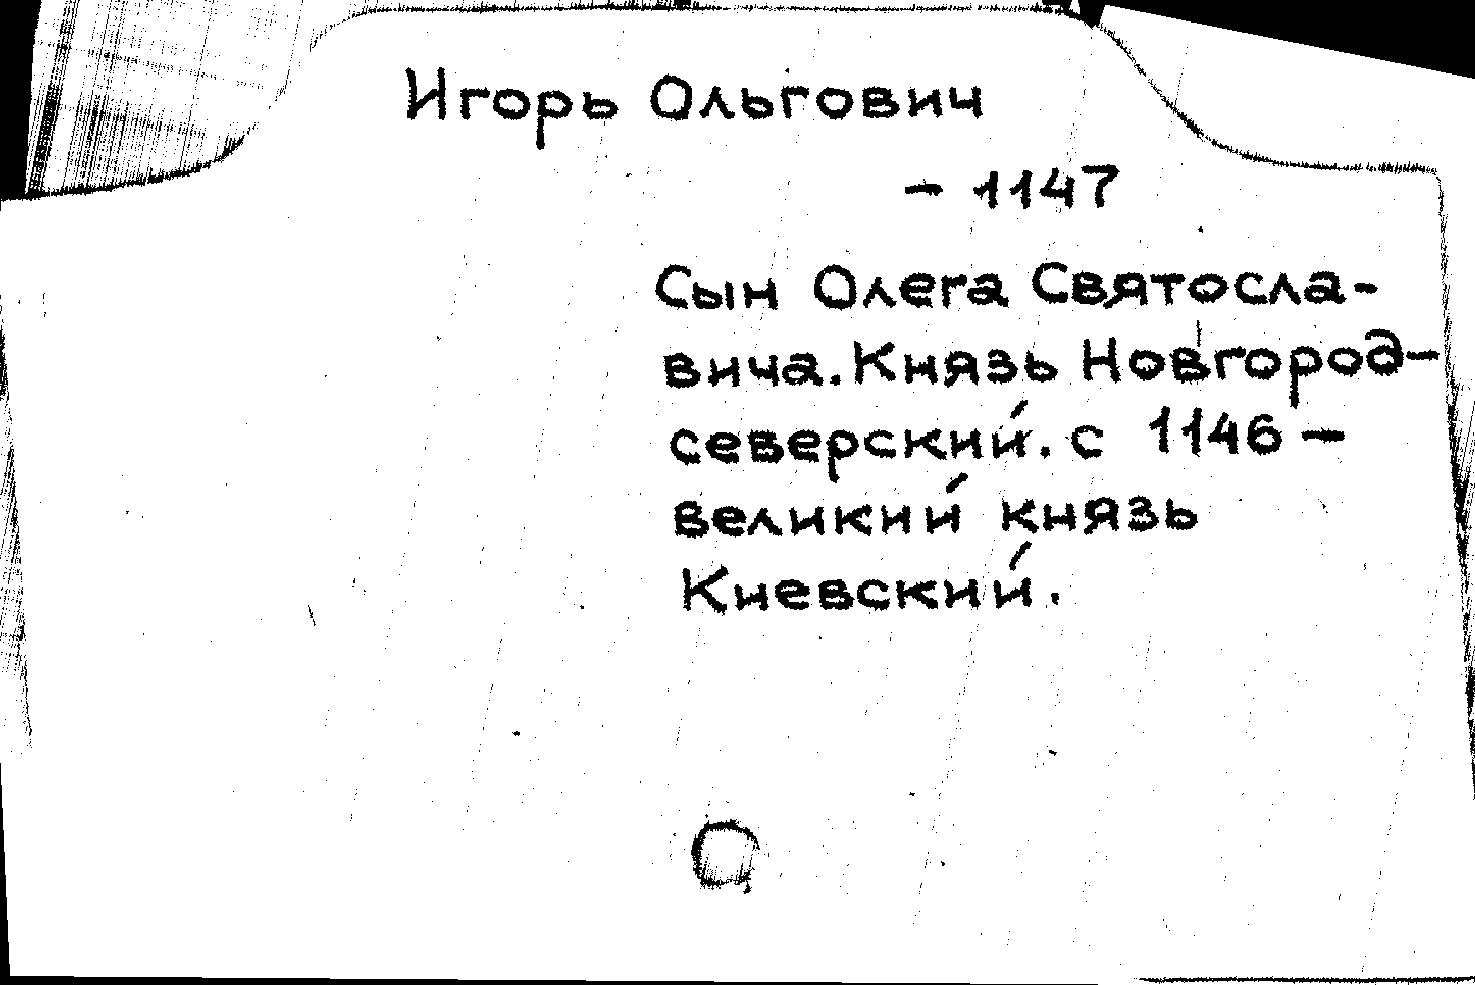 Игорь Ольгович
- 1147
Сын Олега Святосла-
вича. Князь Новгород-
северский. с 1146 -
великий князь
Киевский.